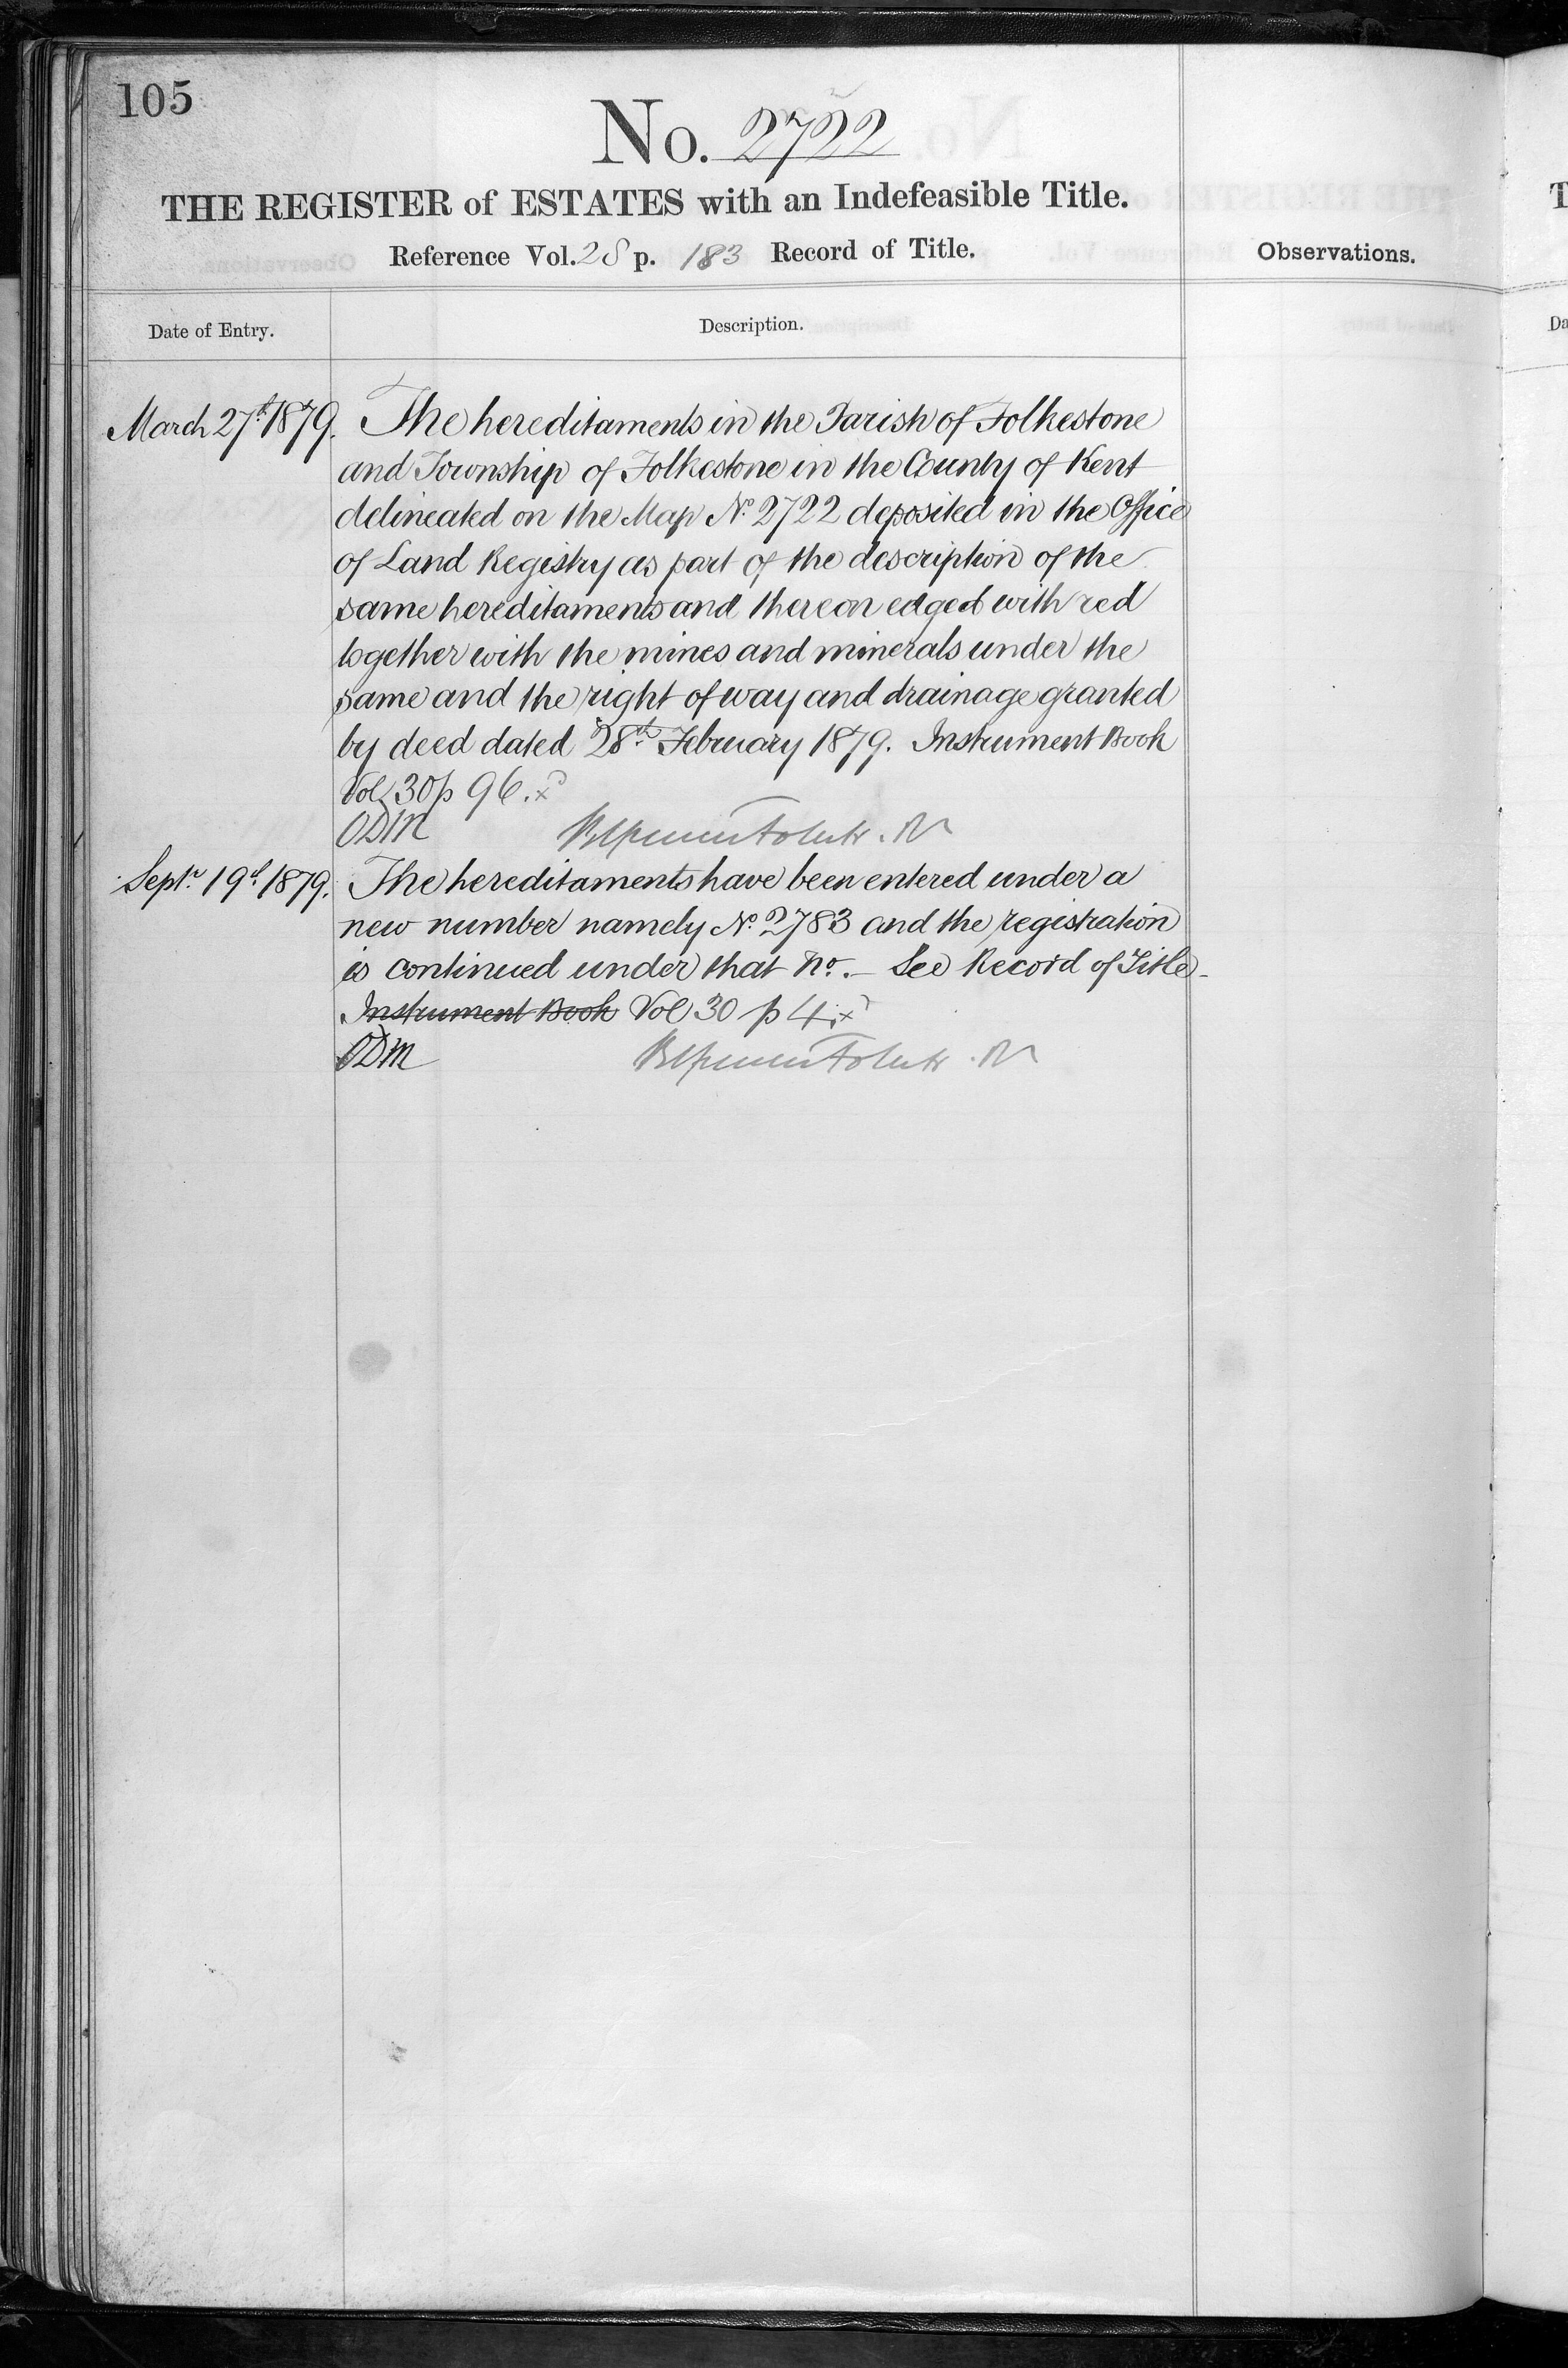 105
No. 2722
THE REGISTER of ESTATES with an Indefeasible Title.
Reference Vol. 28 p. 183 Record of Title.
Observations.
Date of Entry.
Description.
March 27th 1879. The hereditaments in the Parish of Folkestone
and Township of Folkestone in the County of Kent
delineated on the Map No. 2722 deposited in the Office
of Land Registry as part of the description of the
same hereditaments and thereon edged with red
together with the mines and minerals under the
same and the right of way and drainage granted
by deed dated 28th February 1879. Instrument Book
Vol 30 p 96. x
ODM
Septr. 19th 1879. The hereditaments have been entered under a
new number namely No. 2783 and the registration
is continued under that No. – See Record of Title –
Instrument Book Vol 30 p 4. x
ODM